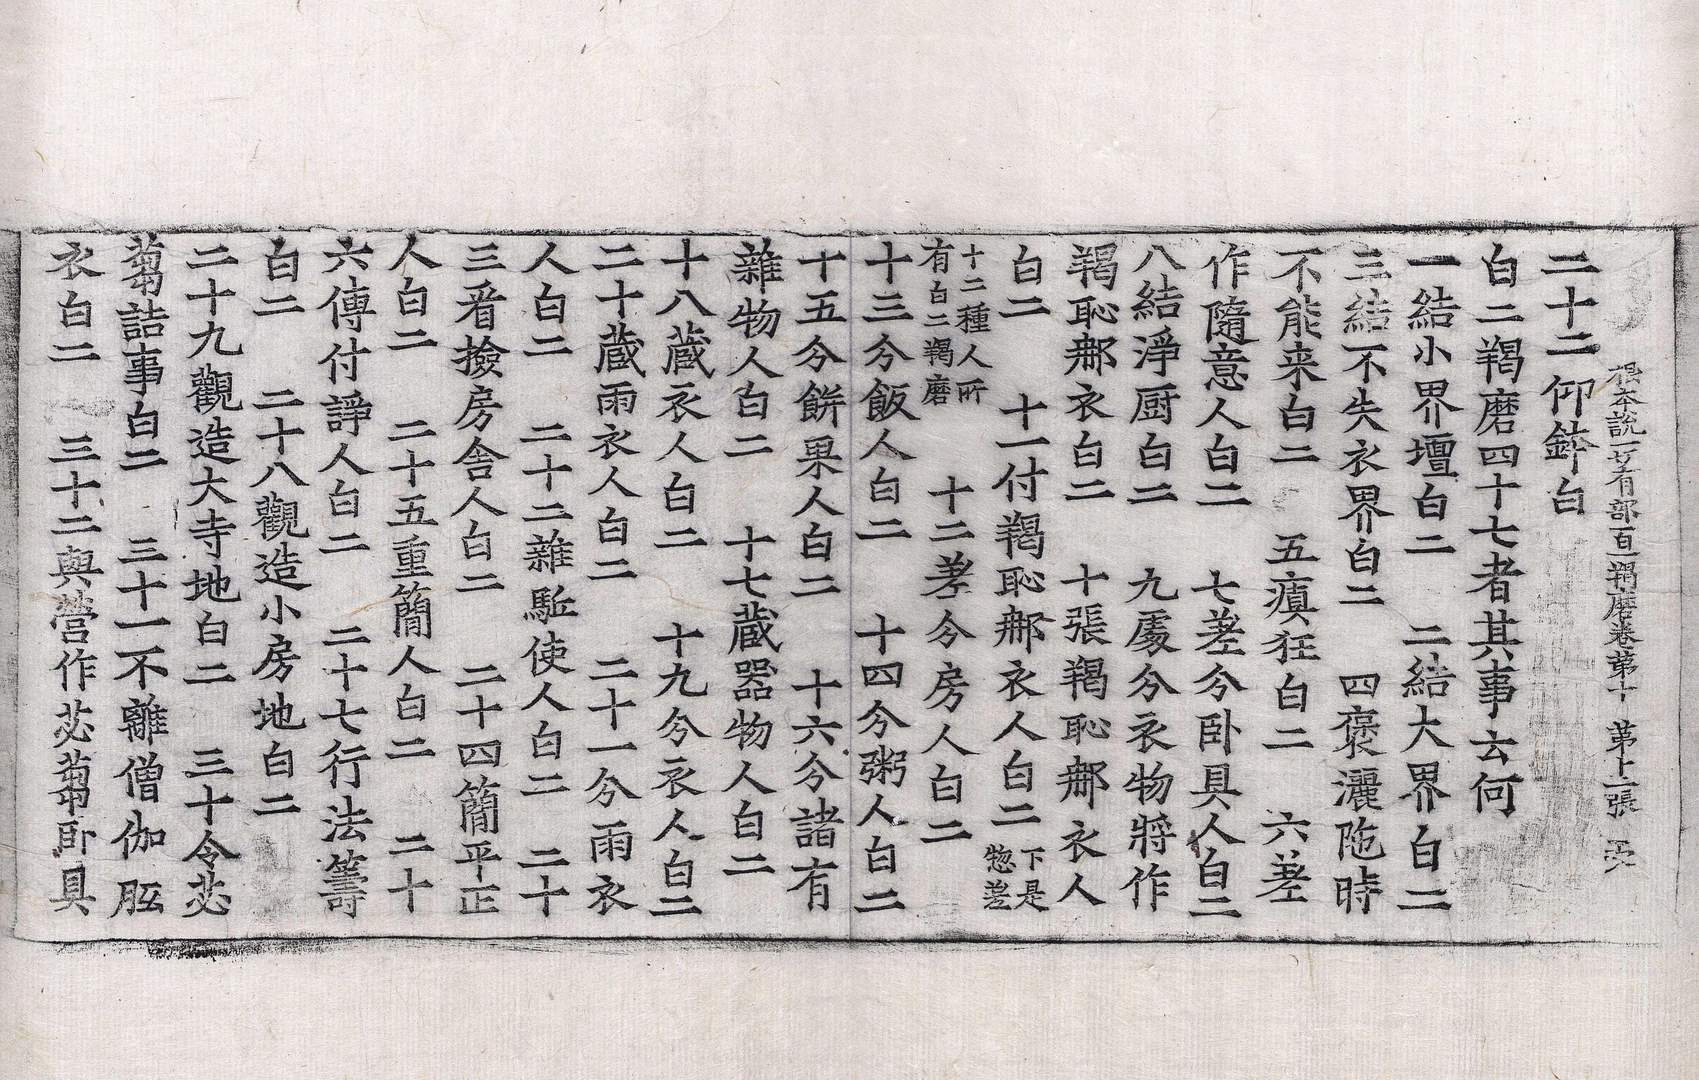 根本說一切有部百一羯磨卷第十 第十二張 受
二十二仰鉢白
白二羯磨四十七者其事云何
一結小界壇白二 二結大界白二
三結不失衣界白二 四褒灑陁時
不能来白二 五瘨狂白二 六差
作隨意人白二 七差分卧具人白二
八結淨厨白二 九處分衣物將作
羯恥郍衣白二 十張羯恥郍衣人
白二 十一付羯恥郍衣人白二 下是惣差
十二種人所有白二羯磨 十二差分房人白二
十三分飯人白二 十四分粥人白二
十五分餅果人白二 十六分諸有
雜物人白二 十七蔵器物人白二
十八蔵衣人白二 十九分衣人白二
二十蔵雨衣人白二 二十一分雨衣
人白二 二十二雜駈使人白二 二十
三看撿房舍人白二 二十四簡平正
人白二 二十五重簡人白二 二十
六傳付諍人白二 二十七行法籌
白二 二十八觀造小房地白二
二十九觀造大寺地白二 三十令苾
蒭詰事白二 三十一不離僧伽胝
衣白二 三十二與營作苾蒭卧具